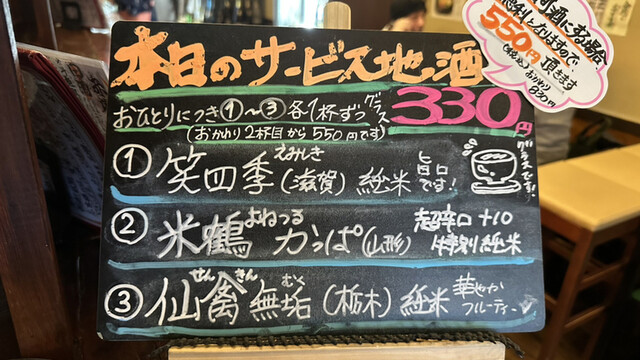 本日のサービス地酒
おひとりにつき①〜③各1杯ずつグラス330円
(おかわり2杯目から550円です)
①笑四季(滋賀)純米 旨口です!
えみしき
グラスです!
②米鶴かっぱ(山形)超辛口+10
よねつる
特別純米
③仙禽無垢(栃木)純米 華やか
せんきん むく
フルーティー
酒にする場合
550円頂きます
(税込)おかわり
830円